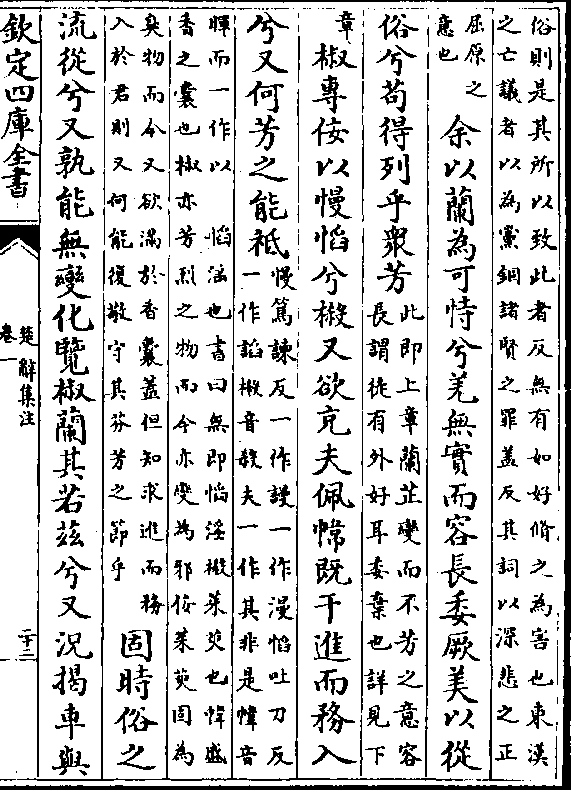 俗則是其所以致此者反無有如好脩之為害也東漢
之亡議者以為黨錮諸賢之罪蓋反其詞以深悲之正
屈原之
意也
余以蘭為可恃兮羌無實而容長委厥美以從
俗兮苟得列乎眾芳
此即上章蘭芷變而不芳之意容
長謂徒有外好耳委棄也詳見下
章
椒專佞以慢慆兮樧又欲充夫佩幃既干進而務入
兮又何芳之能祗
慢篤諫反一作謾一作漫慆吐刀反
一作謟樧音殺夫一作其非是幃音
暉而一作以 慆滛也書曰無即慆滛樧茱萸也幃盛
香之囊也椒亦芳烈之物而今亦變為邪佞茱萸固為
臭物而今又欲滿於香囊蓋但知求進而務
入於君則又何能復敬守其芬芳之節乎
固時俗之
流從兮又孰能無變化覽椒蘭其若茲兮又況揭車與
欽定四庫全書
楚辭集注
卷一
二十二